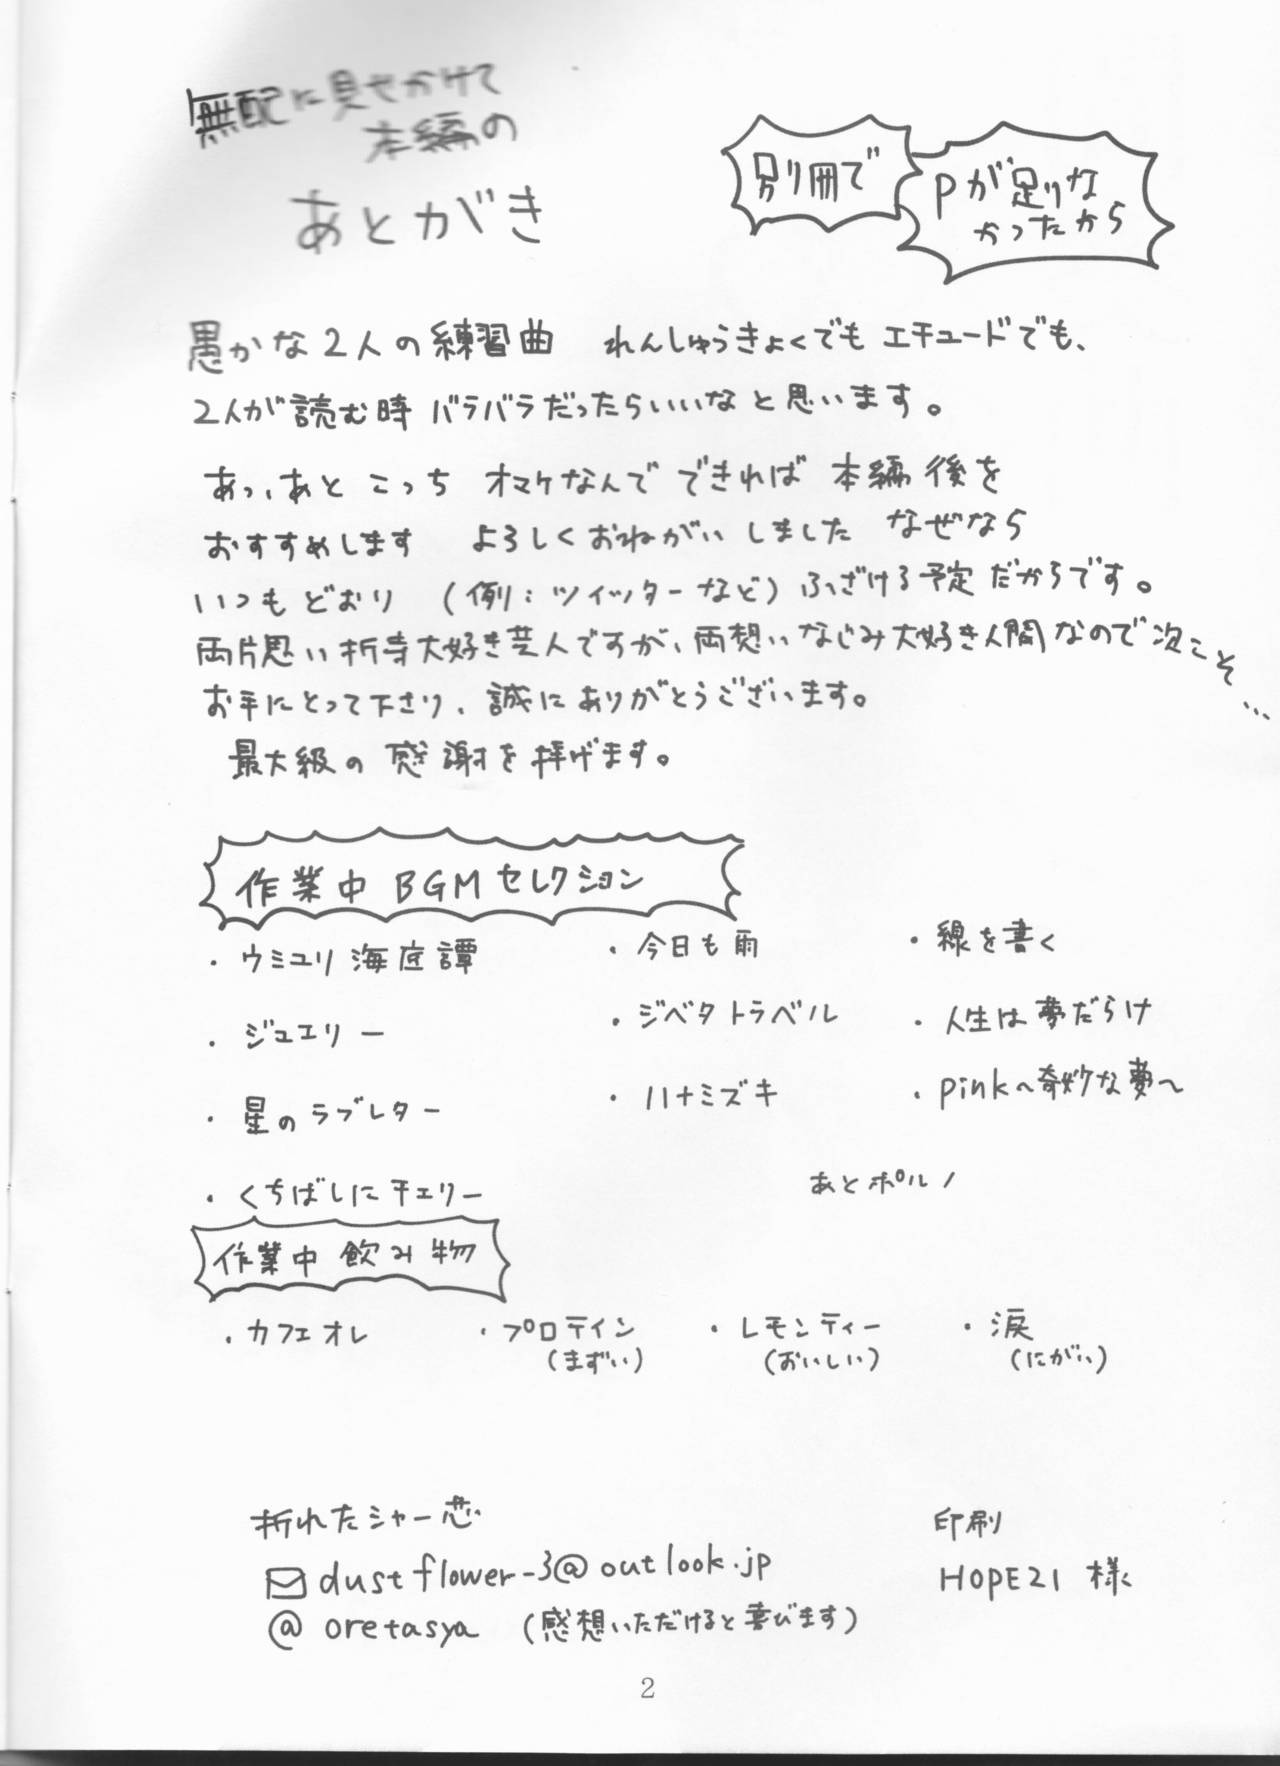 無配に見せかけて
本編の
あとがき
別冊で
Pが足りな
かったから
愚かな2人の練習曲 れんしゅうきょくでも エチュードでも、
2人が読む時 バラバラだったらいいなと思います。
あっ、あと こっち オマケなんで できれば 本編後を
おすすめします よろしくおねがいしました なぜなら
いつもどおり (例:ツイッターなど) ふざける予定だからです。
両片思い折寺大好き芸人ですが、両想いなじみ大好き人間なので次こそ…
お手にとって下さり、誠にありがとうございます。
最大級の感謝を捧げます。
作業中BGMセレクション
・ウミユリ海底譚
・ジュエリー
・星のラブレター
・くちばしにチェリー
・今日も雨
・ジベタトラベル
・ハナミズキ
・線を書く
・人生は夢だらけ
・pink〜奇妙な夢〜
あとポルノ
作業中飲み物
・カフェオレ
・プロテイン
(まずい)
・レモンティー
(おいしい)
・涙
(にがい)
折れたシャー芯
dustflower-3@outlook.jp
@oretasya (感想いただけると喜びます)
印刷
HOPE21 様
2